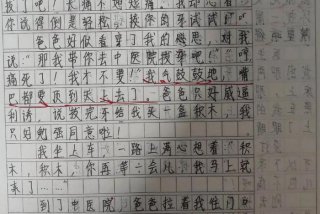 你说得倒是轻松！拔你的牙试试！"
爸爸好似看穿了我的心思，对我
说："那我带你去中医院拔牙吧！""啊，
痛死了！我才不要！"我气鼓鼓地，嘴
巴都要顶到天上去了。爸爸只好威逼
利诱，说拔完牙给我买一盒积木，我
只好勉强同意啦！
我坐上车，一路上满心想着："积
木，积木，你再等一会儿，我马上就
来了……"
到了中医院，爸爸拉着我往门